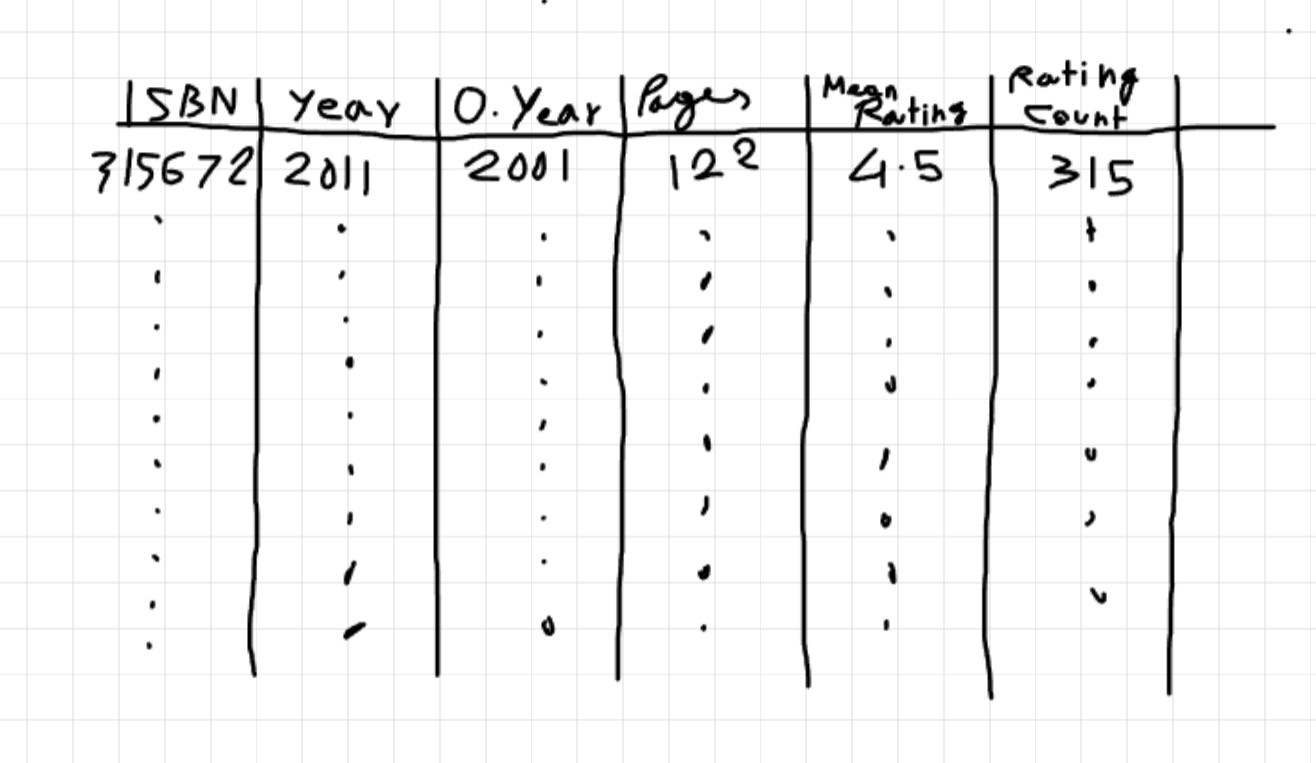 ISBN Year O. Year Pages Mean Rating Rating Count
315672 2011 2001 122 4.5 315